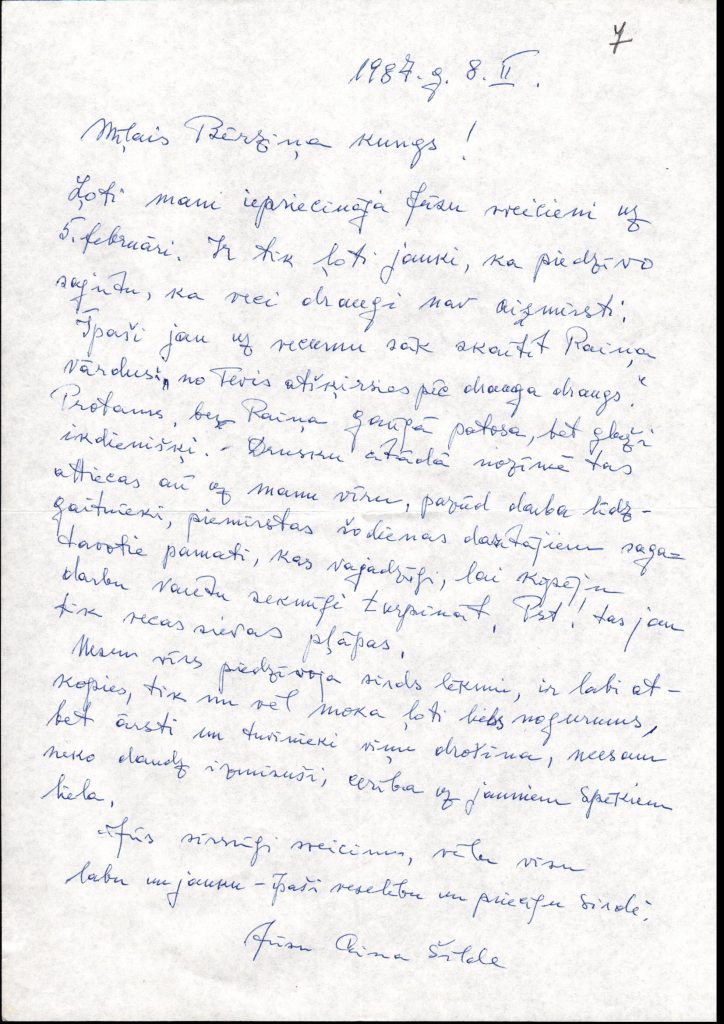 7
1987. g. 8. II.
Mīļais Bērziņa kungs!
Ļoti mani iepriecināja Jūsu sveicieni uz
5. februāri. Ir tik ļoti jauki, ka piedzīvo
sajūtu, ka veci draugi nav aizmirsti.
Īpaši jau uz vecumu sāk skaitīt Raiņa
vārdus: "no Tevis atšķirsies pēc drauga draugs."
Protams, bez Raiņa gaŗā patosa, bet gluži
ikdienišķi. - Drusku citādā nozīmē tas
attiecas arī uz manu vīru, pazūd darba līdz-
gaitnieki, piemirstas šodienas darītājiem saga-
tavotie pamati, kas vajadzīgi, lai kopēju
darbu varētu sekmīgi turpināt. Pst! tas jau
tik vecas sievas pļāpas.
Manu vīrs piedzīvoja sirds lēkmi, ir labi at-
kopies, tik nu vēl moka ļoti liels nogurums,
bet ārsti un tuvinieki viņu drošina, neesam
neko daudz izmisuši, cerība uz jauniem spēkiem
liela.
Jūs sirsnīgi sveicinu, vēlu visu
labu un jauku - īpaši veselību un prieku sirdē.
Jūsu Aina Šilde